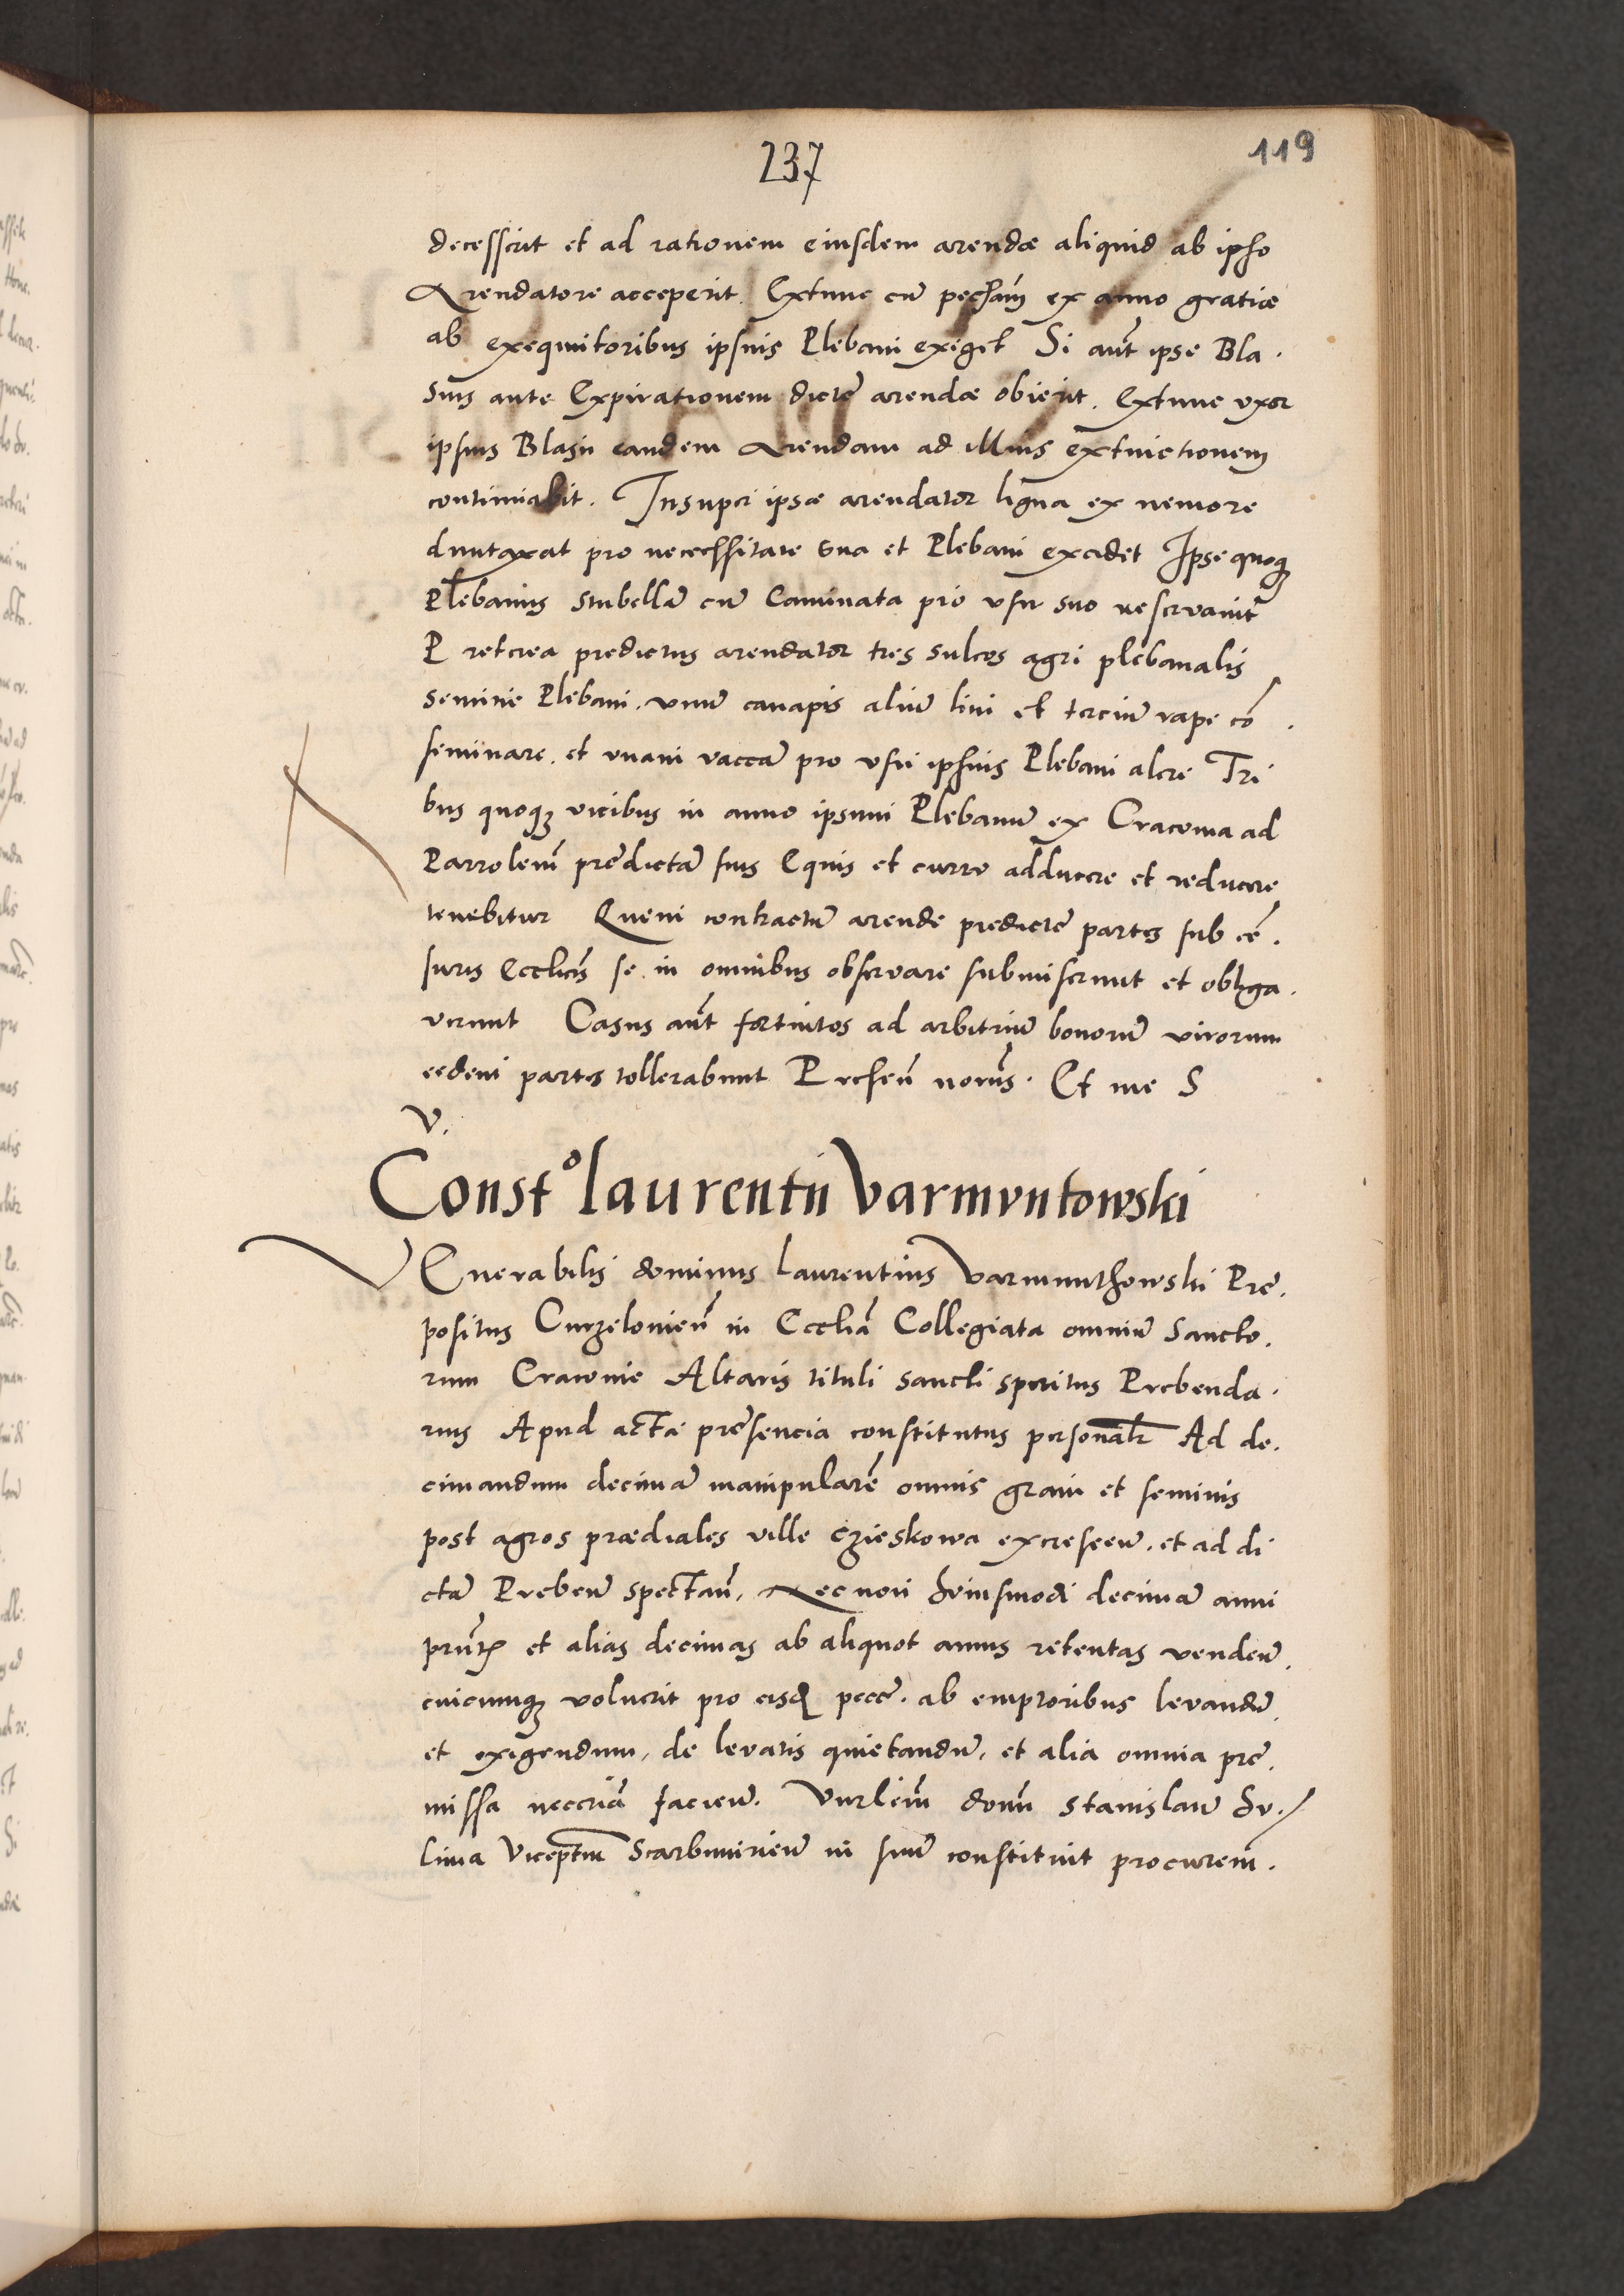 237
119
decesserit et ad rationem eiusdem arendæ aliquid ab ipso
Arendatore acceperit. Extunc eū pecūam̄ ex anno gratiæ
ab exequutoribus ipsius Plebani exiget Si aūt ipse Bla.
sius ante Expirationem dictę arendæ obierit. Extunc vxor
ipsius Blasii eandem Arendam ad illius extinctionem
continuabit. Insuper ipsæ arendator ligna ex nemore
duntaxat pro necechssitate sua et Plebani excidet Ipse quoqꝫ
Plebanus stubellā cū Caminata pro vsu suo reservavit
Preterea predictus arendator tres sulcos agri plebanalis
semine Plebani. vnū canapis aliū lini et terciū rape cō
seminare. et vnam vaccā pro vsu ipsius Plebani alere Tri
bus quoqꝫ vicibus in anno ipsum Plebanū ex Cracovia ad
Parrolem̄ prędictā suis Equis et curro adducere et reducere
tenebitur Quem contractū arende predictę partes sub cē.
suris Ecclicis̄ se in omnibus observare submiserunt et obliga.
verunt Casus aūt fortuitos ad arbitriū bonorū virorum
eedem partes tollerabunt Presen̄ norūs. Et me S
V.
Constᵒ laurentii Varmvntowski
VEnerabilis dominus Laurentius Varmunthowski Prę.
positus Curzelonien̄ in Ecclia Collegiata omniū Sancto.
rum Cracovie Altaris tituli sancti speritus Prebenda.
rius Apud acta pręsencia constitutus personalr̄ Ad de.
cimandum decimā manipularē omnis grani et seminis
post agros prædiales ville Czieskowa excrescen̄. et ad di
ctā Preben̄ spectan̄. Nec non hvinsmodi decimā anni
prn̄tis et alias decimas ab aliquot annis retentas venden̄.
cuicumqꝫ voluerit pro eisdē pecc̄. ab emptoribus levandū.
et exigendum, de levatis quietandū, et alia omnia pre.
missa neccria facien̄. Vnrlem̄ dom̄ Stanislaū Hv./
lina Viceptm̄ Scarbimirien̄ in suū constituit procurem̄.